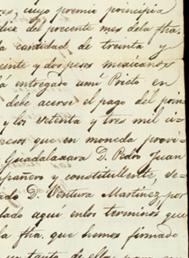 es, cuyo premio principia
diez del presente mes dela fha,
la cantidad de treinta y
veinte y dos pesos mexicanos
há entregado umi Prieto en
debe acerse el pago del prin
y los setenta y tres mil ci
pesos que en moneda provi
Guadalaxara D. Pedro Juan
compañero y constituellente, se
do D. Ventura Martinez por
lado aqui enlos terminos que
la fha, que hemos firmado
un tanto de ellos